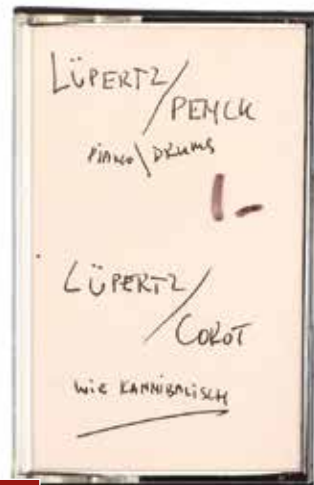 LÜPERTZ/
PENCK
PIANO\DRUMS
1-
LÜPERTZ/
COROT
WIE KANNIBALISCH